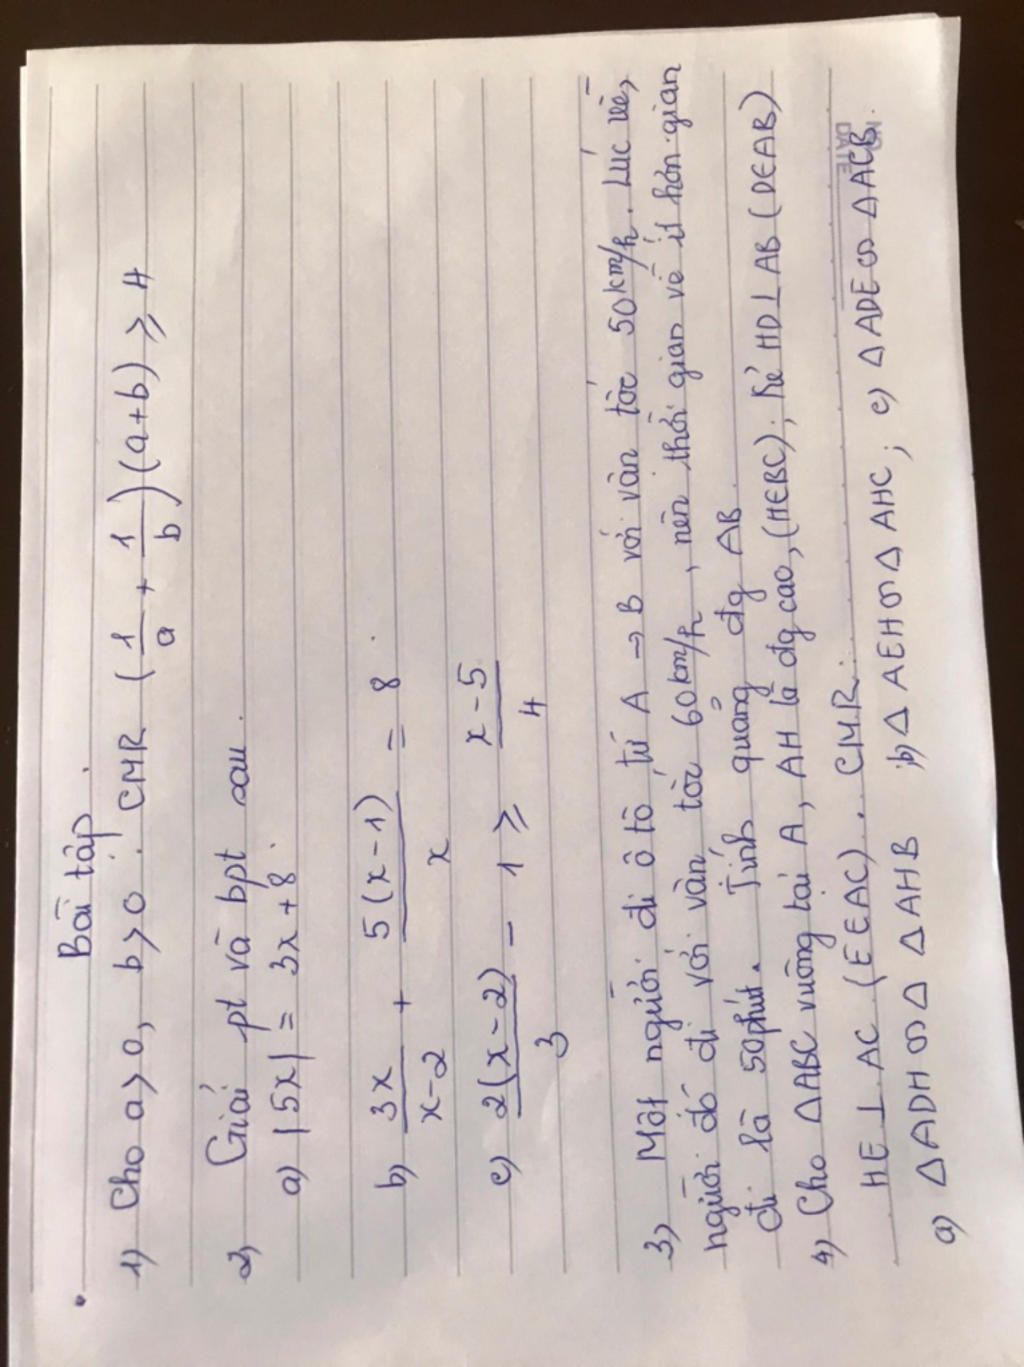 Bài tập.
1) Cho a>0, b>0. CMR (1/a + 1/b)(a+b) ≥ 4
2) Giải pt và bpt sau.
a) |5x| = 3x + 8.
b) 3x/(x-2) + 5(x-1)/x = 8.
c) 2(x-2)/3 - 1 ≥ (x-5)/4
3) Một người đi ô tô từ A → B với vận tốc 50km/h. Lúc về,
người đó đi với vận tốc 60km/h, nên thời gian về ít hơn gian
đi là 50phút. Tính quảng đg AB
4) Cho ΔABC vuông tại A, AH là đg cao, (H∈BC); kẻ HD⊥AB (D∈AB)
HE ⊥ AC (E∈AC). CMR:
a) ΔADH ∽ ΔAHB ; b) ΔAEH ∽ ΔAHC ; c) ΔADE ∽ ΔACB.
NO.
DATE